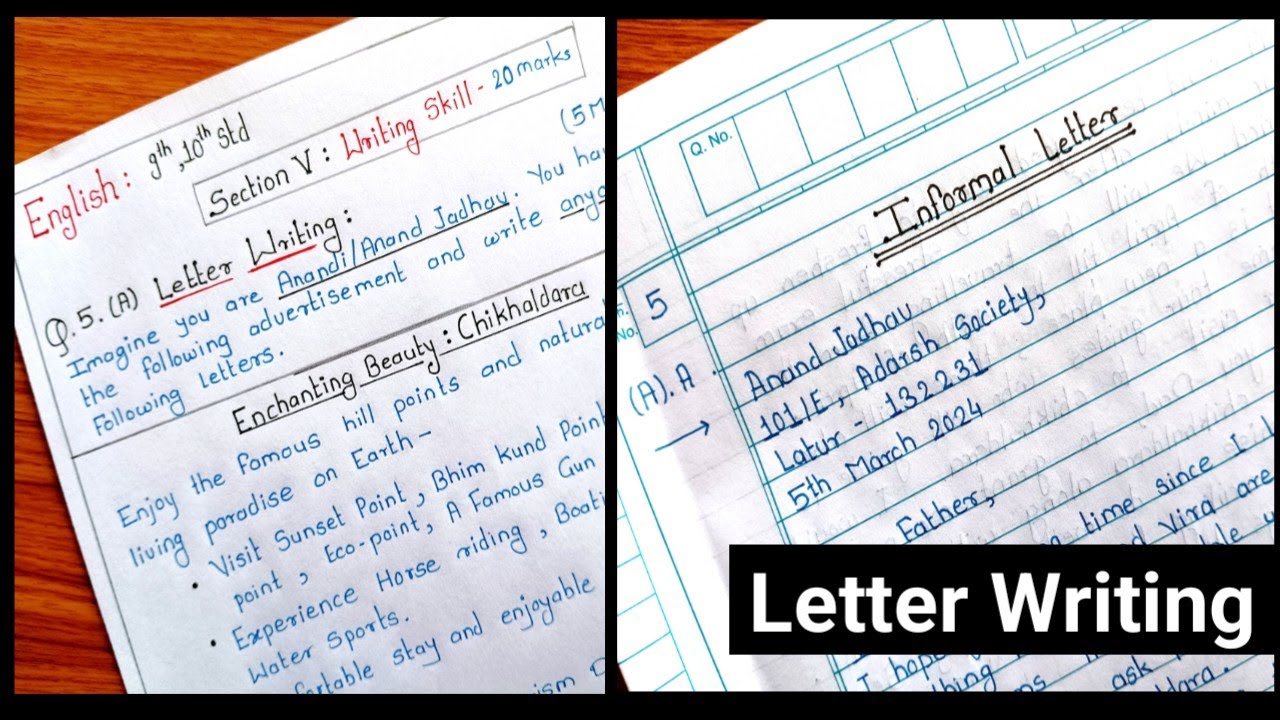 English: 9th, 10th Std
Section V: Writing Skill - 20 marks
(5M
Q.5. (A) Letter Writing:
Imagine you are Anandi/Anand Jadhav. You
the following advertisement and write
following letters.
Enchanting Beauty: Chikhaldara
Enjoy the famous hill points and natural
living paradise on Earth-
• Visit Sunset Point, Bhim Kund Point
point, Eco-point, A Famous Gun
• Experience Horse riding,
Water Sports.
stay and enjoyable
Q. No.
Informal Letter
No.
5
(A). A.
→
Anand Jadhav
101/E, Adarsh Society,
Latur - 132231
5th March 2024
Father,
time since I
Vira are
I
ask
Letter Writing